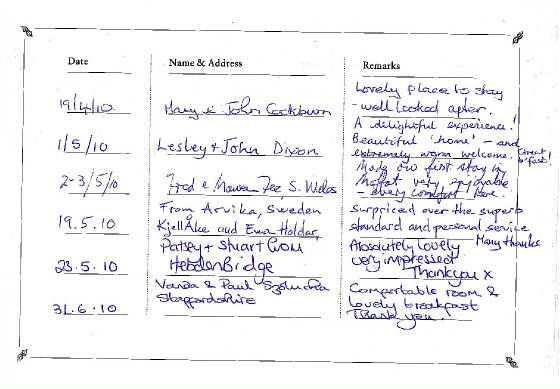 Date Name & Address Remarks
19/4/10 Mary & John Cockburn Lovely place to stay
- well looked after.
1/5/10 Lesley + John Dixon A delightful experience!
Beautiful 'home' - and
extremely warm welcome. Great b'fast!
2-3/5/10 Fred & S. Wales Made our first stay in
Moffat very enjoyable
- every comfort
19.5.10 From Arvika, Sweden
KjellÅke and Ewa Holdar, Surpriced over the superb
standard and personal service
Many thanks
23.5.10 Patsey + Stuart
Hebden Bridge Absolutely lovely
very impressed
Thankyou x
31.6.10 Vanda & Paul
Staffordshire Comfortable room &
lovely breakfast
Thank you.